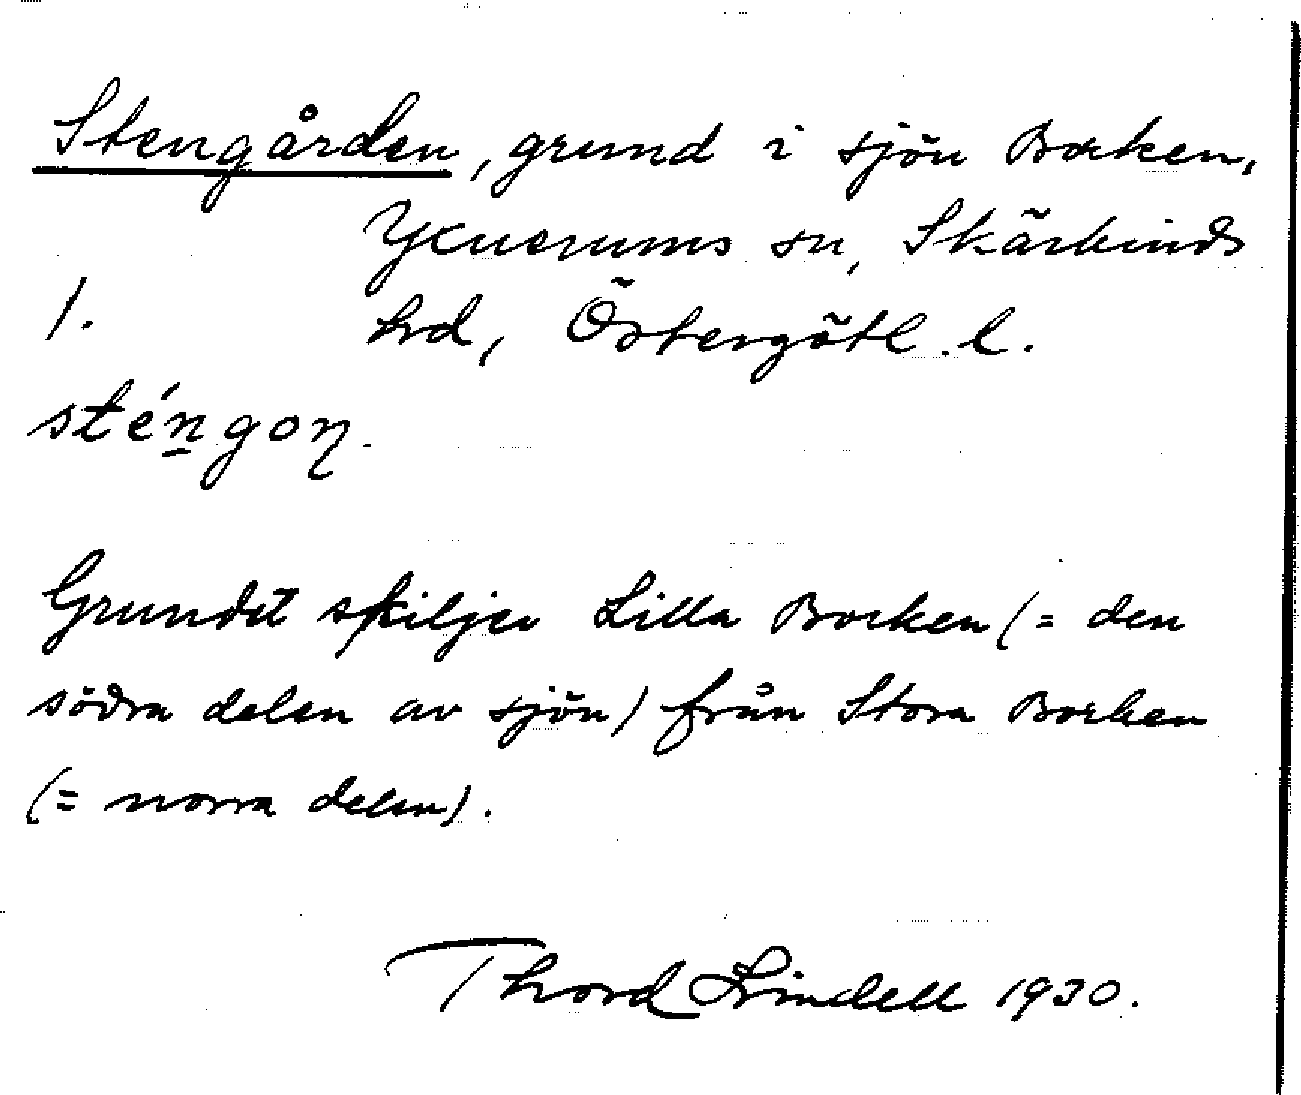 Stengården, grund i sjön Borken,
Yxnerums sn, Skärkinds
1. hrd, Östergötl. l.
sténgoŋ.
Grundet skiljer Lilla Borken (= den
södra delen av sjön) från Stora Borken
(= norra delen).
Thord Lindell 1930.